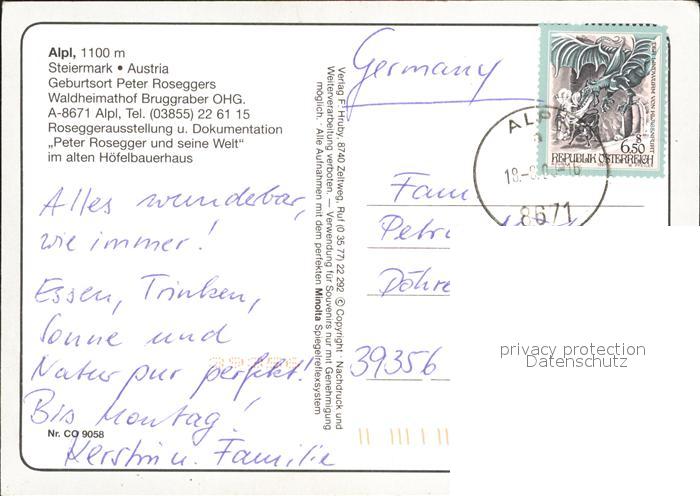 Alpl, 1100 m
Steiermark • Austria
Geburtsort Peter Roseggers
Waldheimathof Bruggraber OHG.
A-8671 Alpl, Tel. (03855) 22 61 15
Roseggerausstellung u. Dokumentation
„Peter Rosegger und seine Welt"
im alten Höfelbauerhaus
Alles wunderbar,
wie immer!
Essen, Trinken,
Sonne und
Natur pur perfekt!
Bis Montag!
Kerstin u. Familie
Nr. CO 9058
Verlag F. Hruby, 8740 Zeltweg, Ruf (0 35 77) 22 292 © Copyright · Nachdruck und
Weiterverarbeitung verboten. — Verwendung für Souvenirs nur mit Genehmigung
möglich. · Alle Aufnahmen mit dem perfekten Minolta Spiegelreflexsystem
Germany
DER LINDWURM VON KLAGENFURT
S
6.50
REPUBLIK ÖSTERREICH
ALPL
8671
Fam
Petr
Döhre
39356
privacy protection
Datenschutz